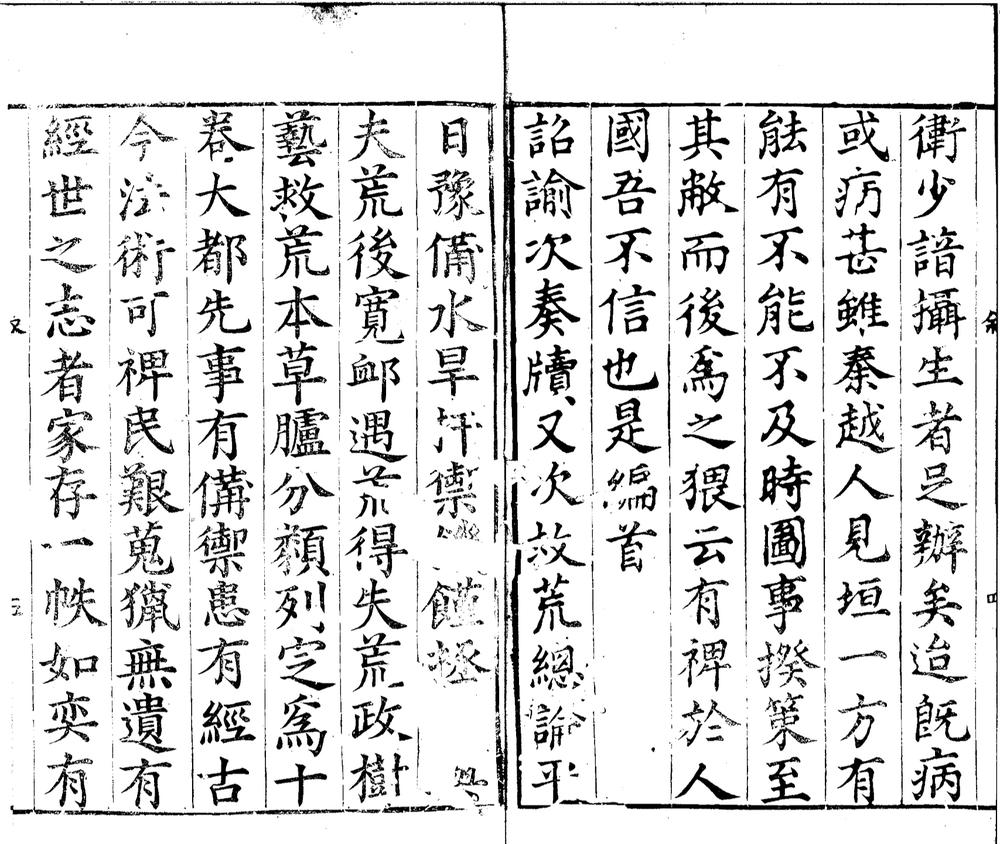 衛少諳攝生者足辦矣迨旣病
或病甚雖秦越人見垣一方有
能有不能不及時圖事揆策至
其敝而後爲之猥云有裨於人
國吾不信也是編首
詔諭次奏牘又次故荒總論平
日豫備水旱扞禦 饉拯
夫荒後寬卹遇荒得失荒政樹
藝救荒本草臚分類列定爲十
卷大都先事有備禦患有經古
今法術可裨民艱蒐獵無遺有
經世之志者家存一帙如奕有
四
五